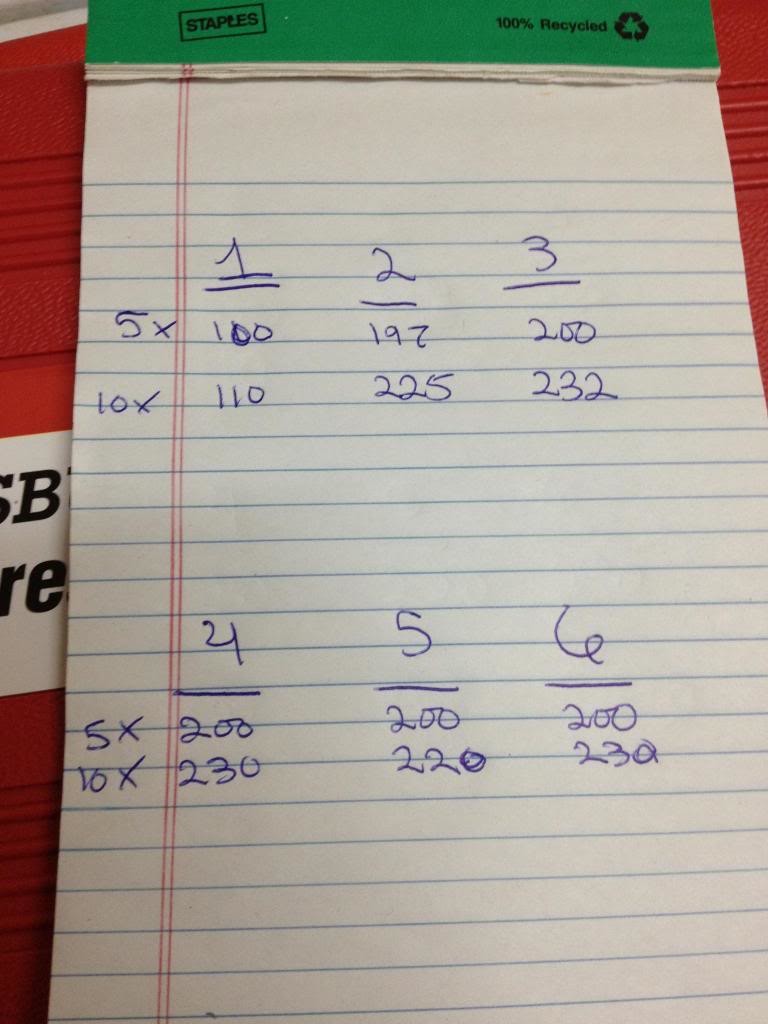 STAPLES 100% Recycled
1 2 3
5x 100 197 200
10x 110 225 232
SB
re
4 5 6
5x 200 200 200
10x 230 220 230